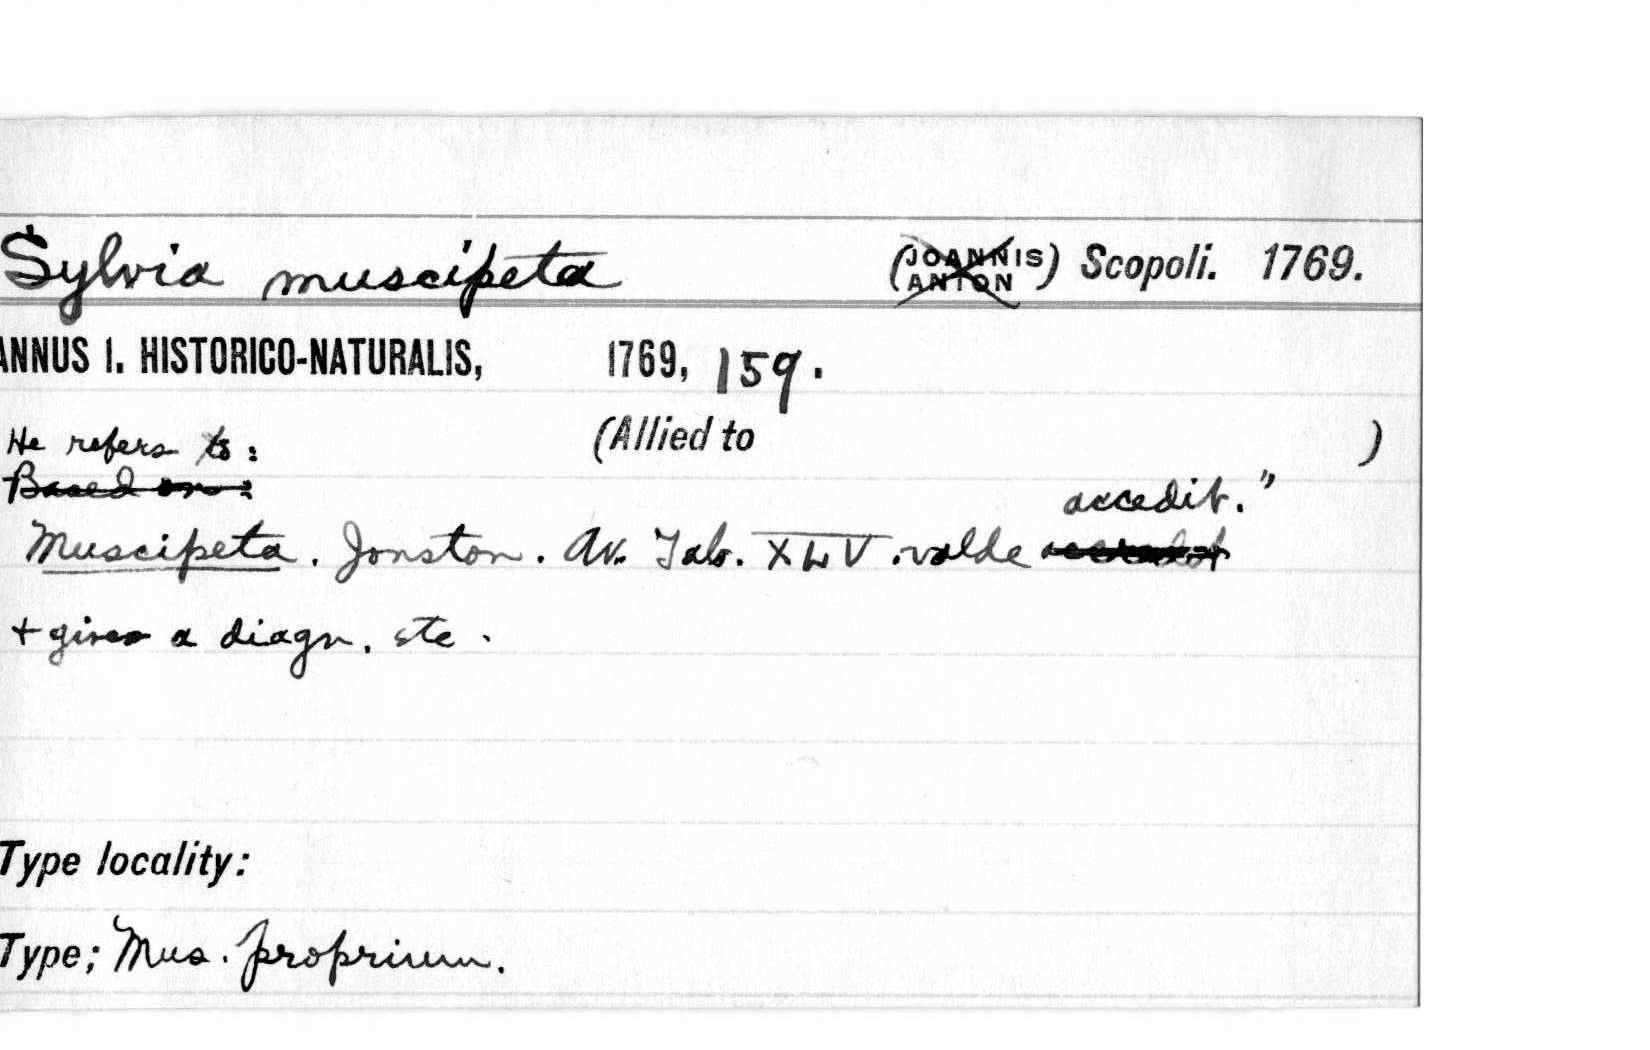 Sylvia muscipeta (JOANNIS ANTON) Scopoli. 1769.
ANNUS I. HISTORICO-NATURALIS, 1769, 159.
He refers to: (Allied to )
Based on:
accedit."
Muscipeta. Jonston. Av. Tab. XLV. valde
+ gives a diagn. etc.
Type locality:
Type; Mus. proprium.